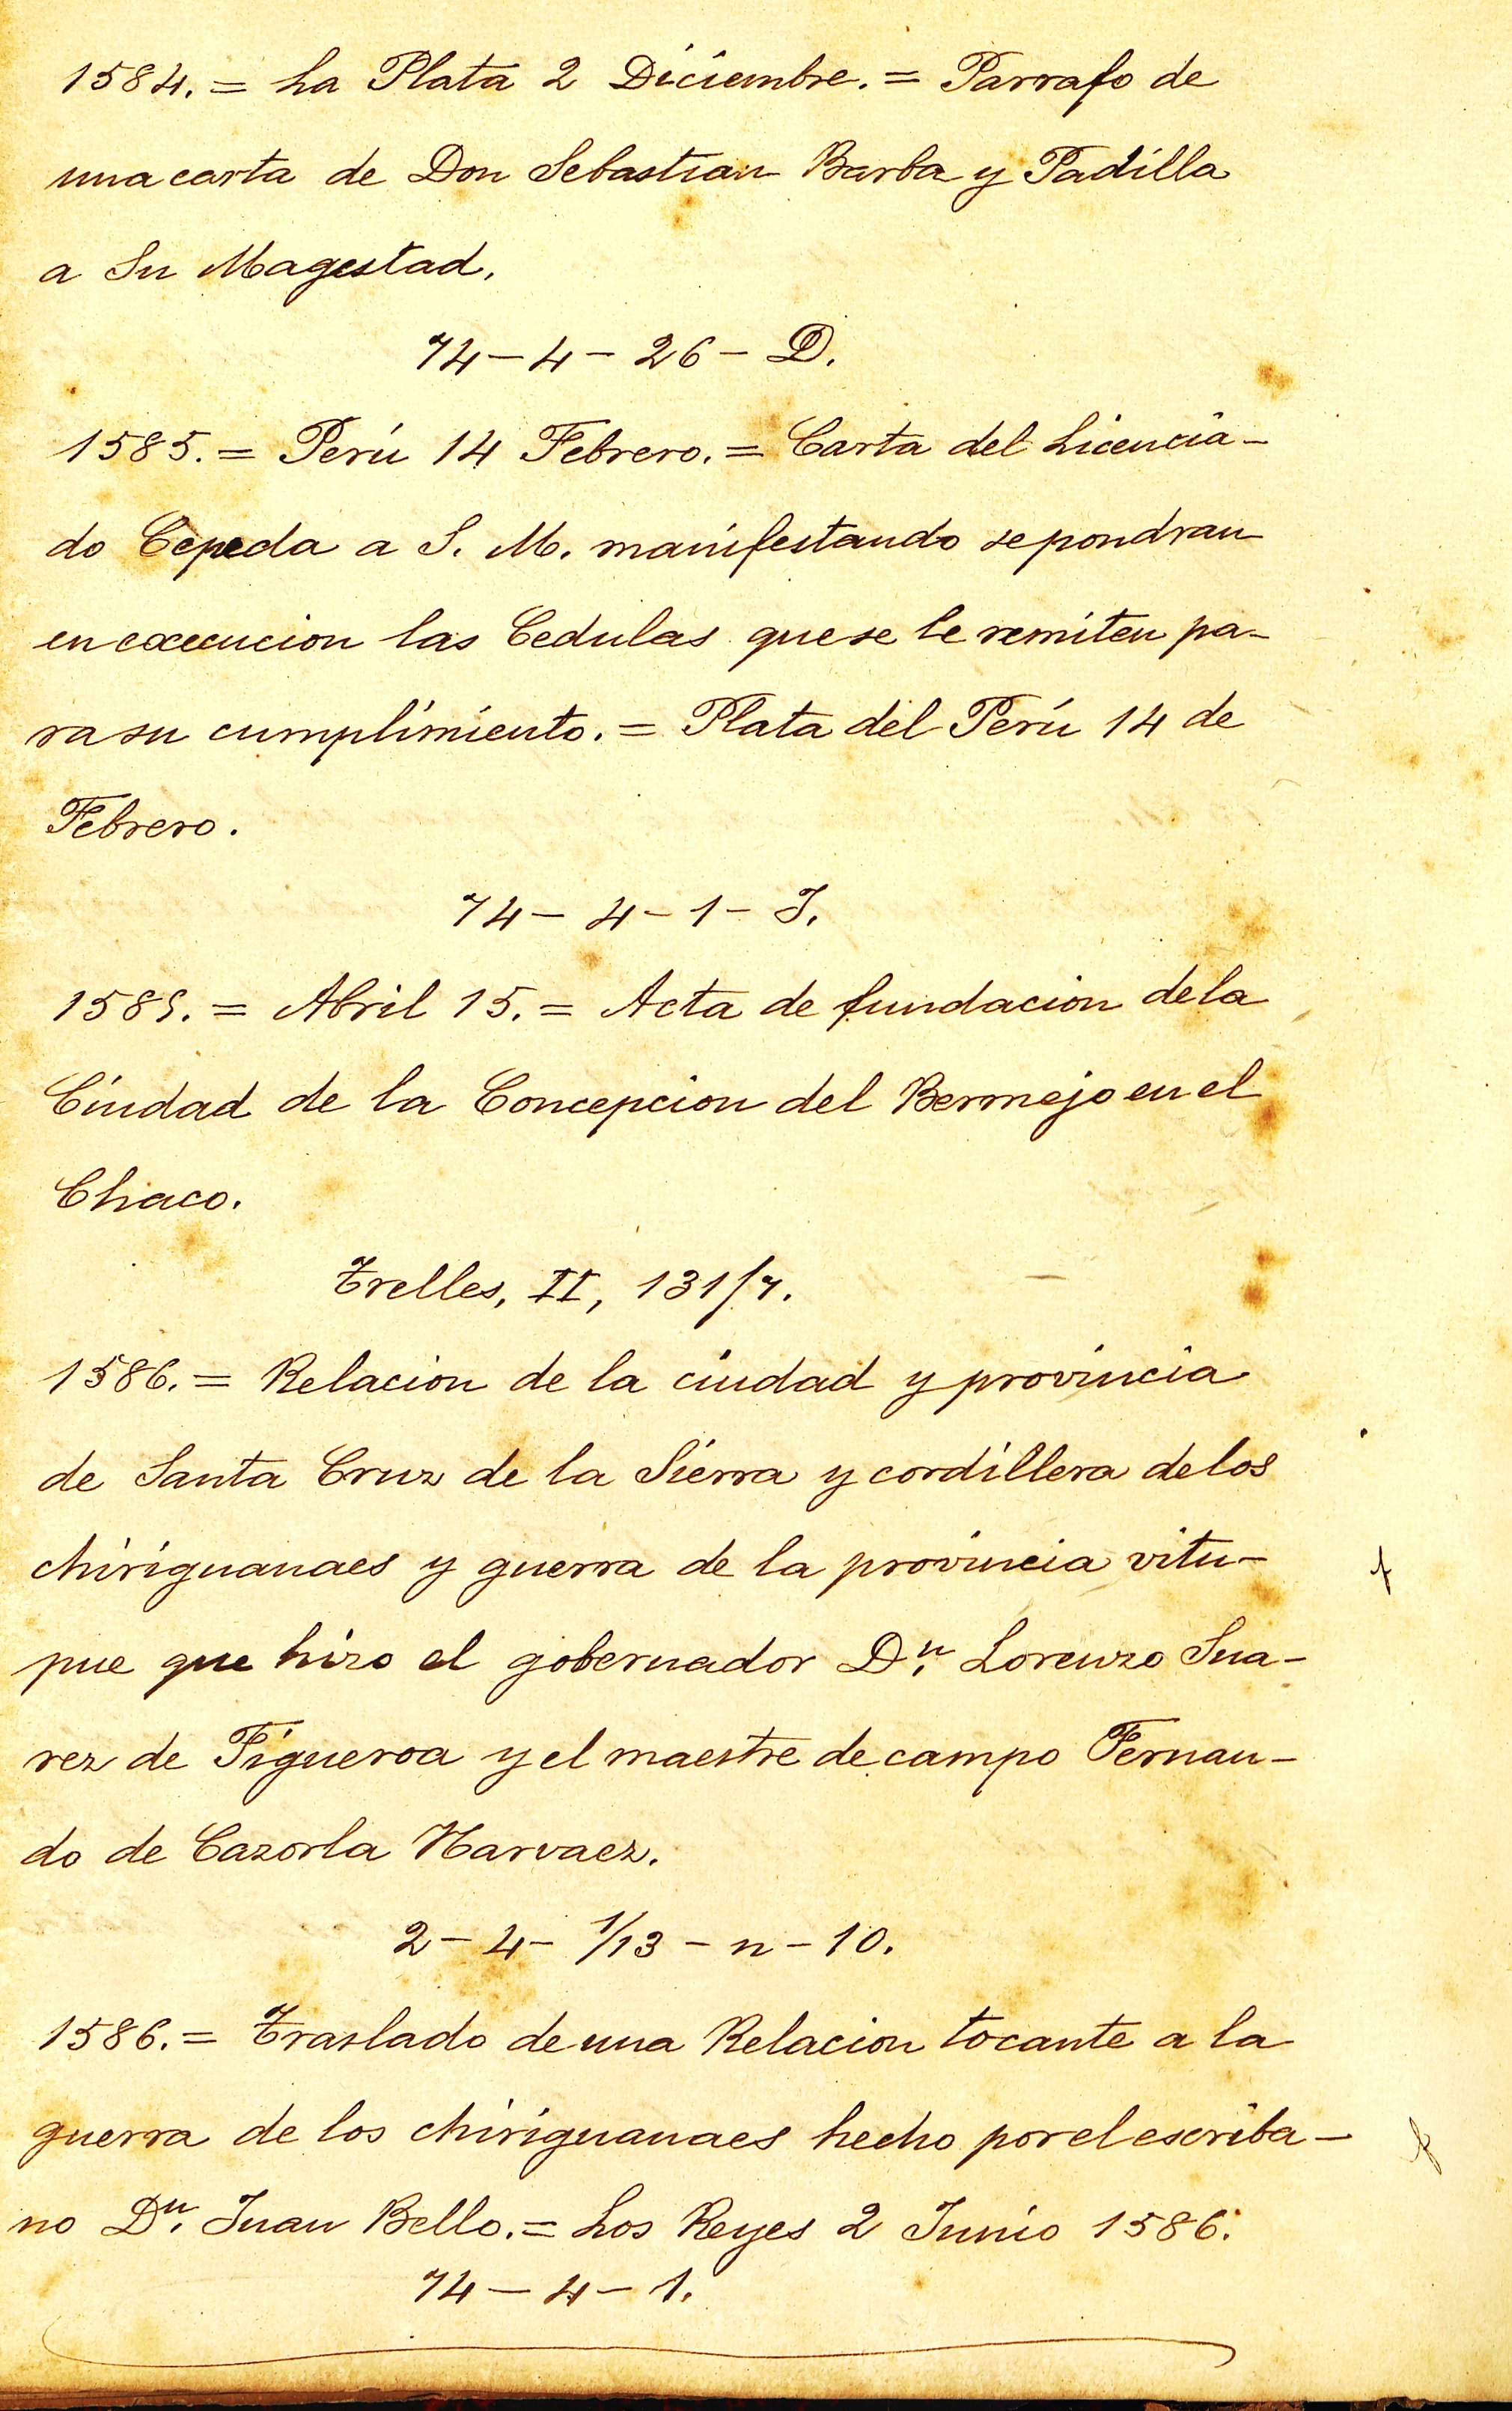 1584. = La Plata 2 Diciembre. = Parrafo de
una carta de Don Sebastian Barba y Padilla
a Su Magestad.
74 - 4 - 26 - D.
1585. = Perú 14 Febrero. = Carta del Licencia-
do Cepeda a S. M. manifestando se pondran
en execucion las Cedulas que se le remiten pa-
ra su cumplimiento. = Plata del Perú 14 de
Febrero.
74 - 4 - 1 - J.
1585. = Abril 15. = Acta de fundacion de la
Ciudad de la Concepcion del Bermejo en el
Chaco.
Trelles, II, 131/7.
1586. = Relacion de la ciudad y provincia
de Santa Cruz de la Sierra y cordillera de los
chiriguanaes y guerra de la provincia vitu-
pue que hizo el gobernador Dn. Lorenzo Sua-
rez de Figueroa y el maestre de campo Fernan-
do de Cazorla Narvaez.
2 - 4 - 1/13 - n - 10.
1586. = Traslado de una Relacion tocante a la
guerra de los chiriguanaes hecho por el escriba-
no Dn. Juan Bello. = Los Reyes 2 Junio 1586.
74 - 4 - 1.